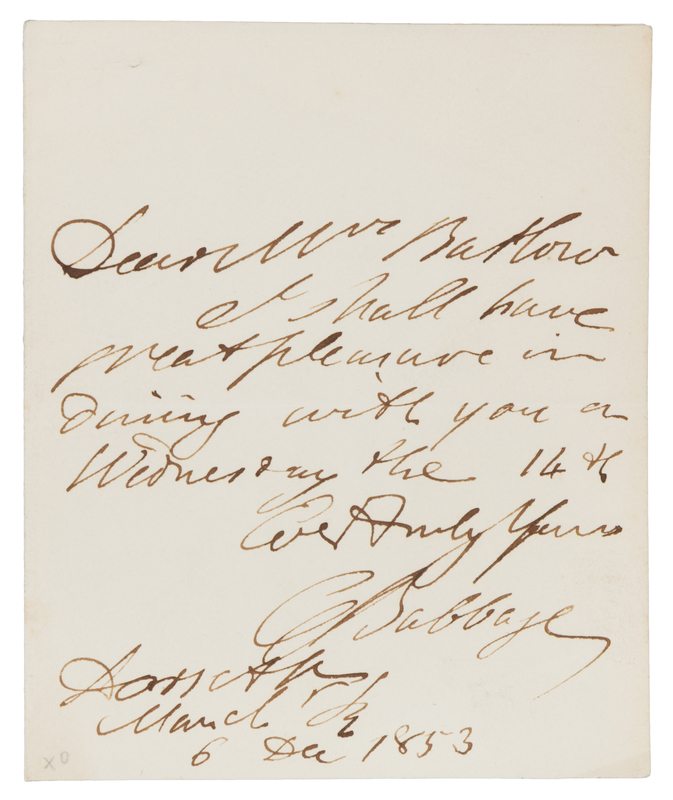 Dear Mrs Barlow
I shall have
great pleasure in
Dining with you on
Wednesday the 14th
Ever Truly Yours
C Babbage
Dorset St
Manch Sq
6 Dec 1853
x0